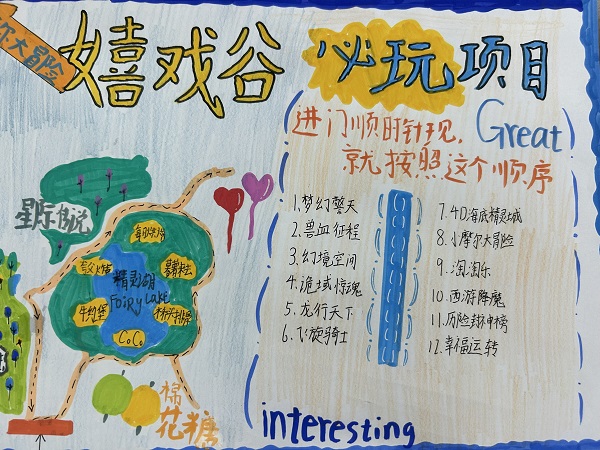 尔大冒险
嬉戏谷
必玩项目
进门顺时针玩,
Great
就按照这个顺序
1.梦幻擎天
2.兽血征程
3.幻境空间
4.诡域惊魂
5.龙行天下
6.飞旋骑士
7.4D海底精灵城
8.小摩尔大冒险
9.淘淘乐
10.西游降魔
11.历险封神榜
12.幸福运转
星际传说
精灵湖
Fairy Lake
牛约堡
CoCo
棉
花糖
interesting